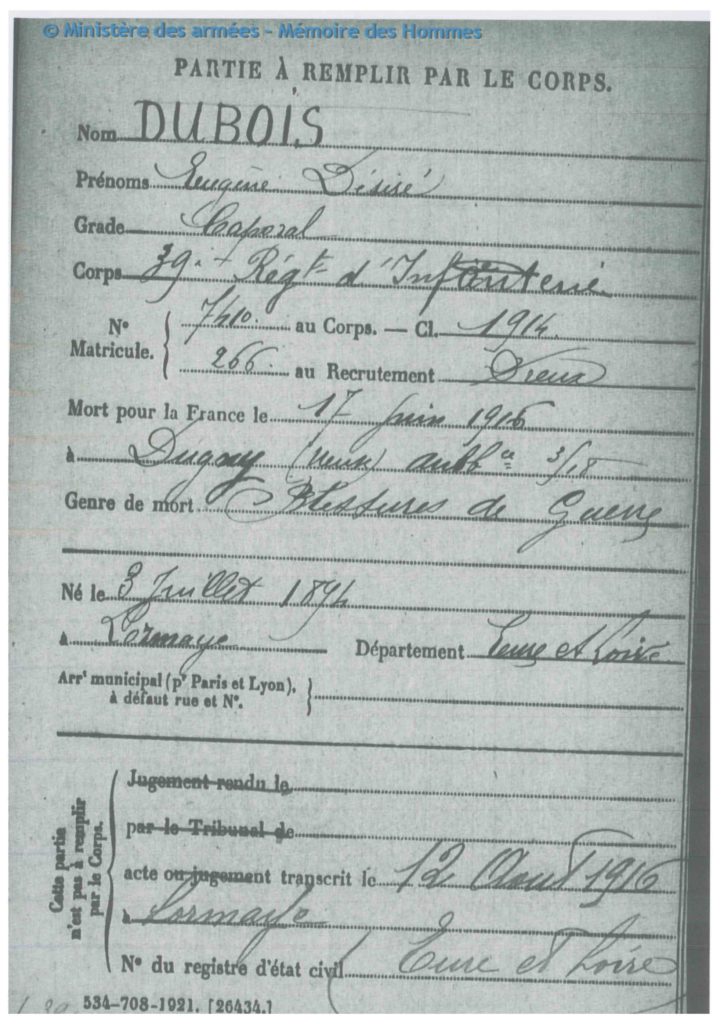 © Ministère des armées - Mémoire des Hommes
PARTIE À REMPLIR PAR LE CORPS.
Nom DUBOIS
Prénoms Eugène Désiré
Grade Caporal
Corps 39e Régt d'Infanterie
No Matricule. { 7410. au Corps. — Cl. 1914.
266. au Recrutement Dreux
Mort pour la France le 17 Juin 1916
à Dugny (Meuse) ambce 3/18
Genre de mort Blessures de Guerre
Né le 3 Juillet 1894
à Lormaye Département Eure et Loire
Arrt municipal (pr Paris et Lyon),
à défaut rue et No.
Cette partie n'est pas à remplir par le Corps.
Jugement rendu le
par le Tribunal de
acte ou jugement transcrit le 12 Août 1916
à Lormaye
No du registre d'état civil Eure et Loire
534-708-1921. [26434.]